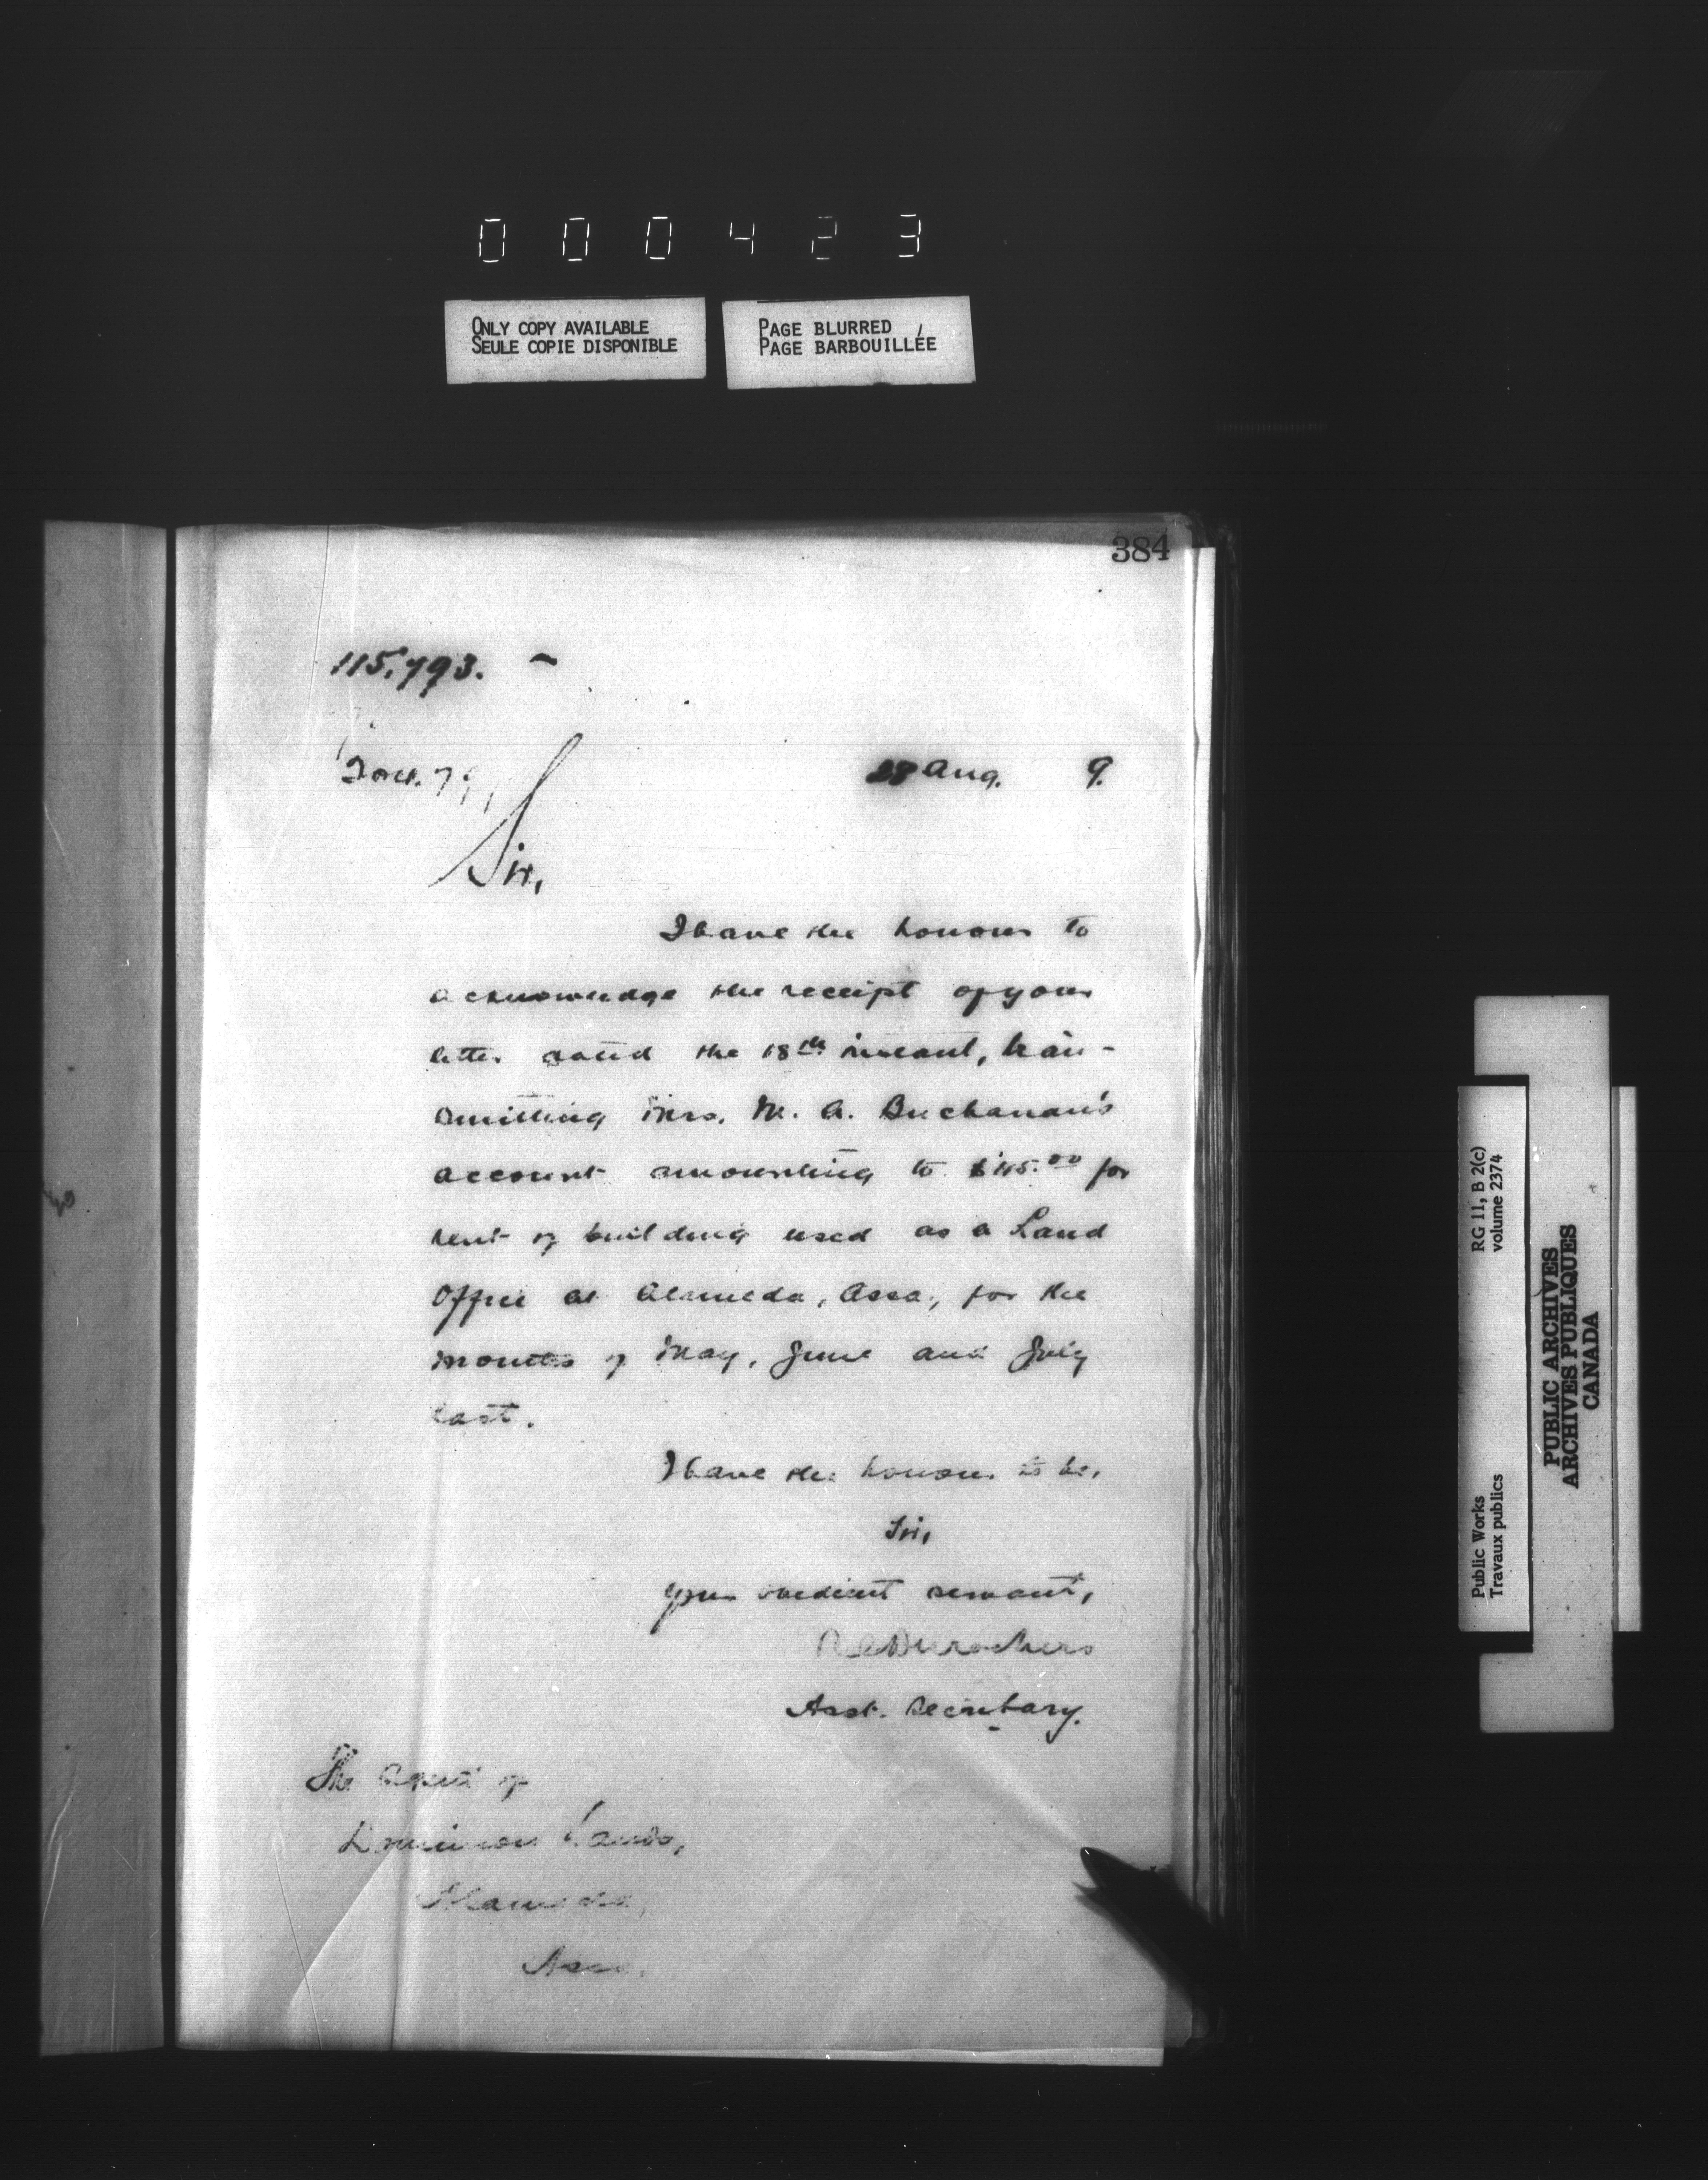 000423
ONLY COPY AVAILABLE
SEULE COPIE DISPONIBLE
PAGE BLURRED
PAGE BARBOUILLÉE
384
115,793.
28 Aug. 9.
Sir,
I have the honour to
acknowledge the receipt of your
letter dated the 18th instant, tran-
smitting Mrs. M. A. Buchanan's
account amounting to $45.00 for
rent of building used as a Land
Office at Alameda, Assa., for the
months of May, June and July
last.
I have the honour to be,
Sir,
Your obedient servant,
Desrochers
Asst. Secretary.
The Agent of
Dominion Lands,
Alameda,
Assa.
RG 11, B 2(c)
volume 2374
Public Works
Travaux publics
PUBLIC ARCHIVES
ARCHIVES PUBLIQUES
CANADA